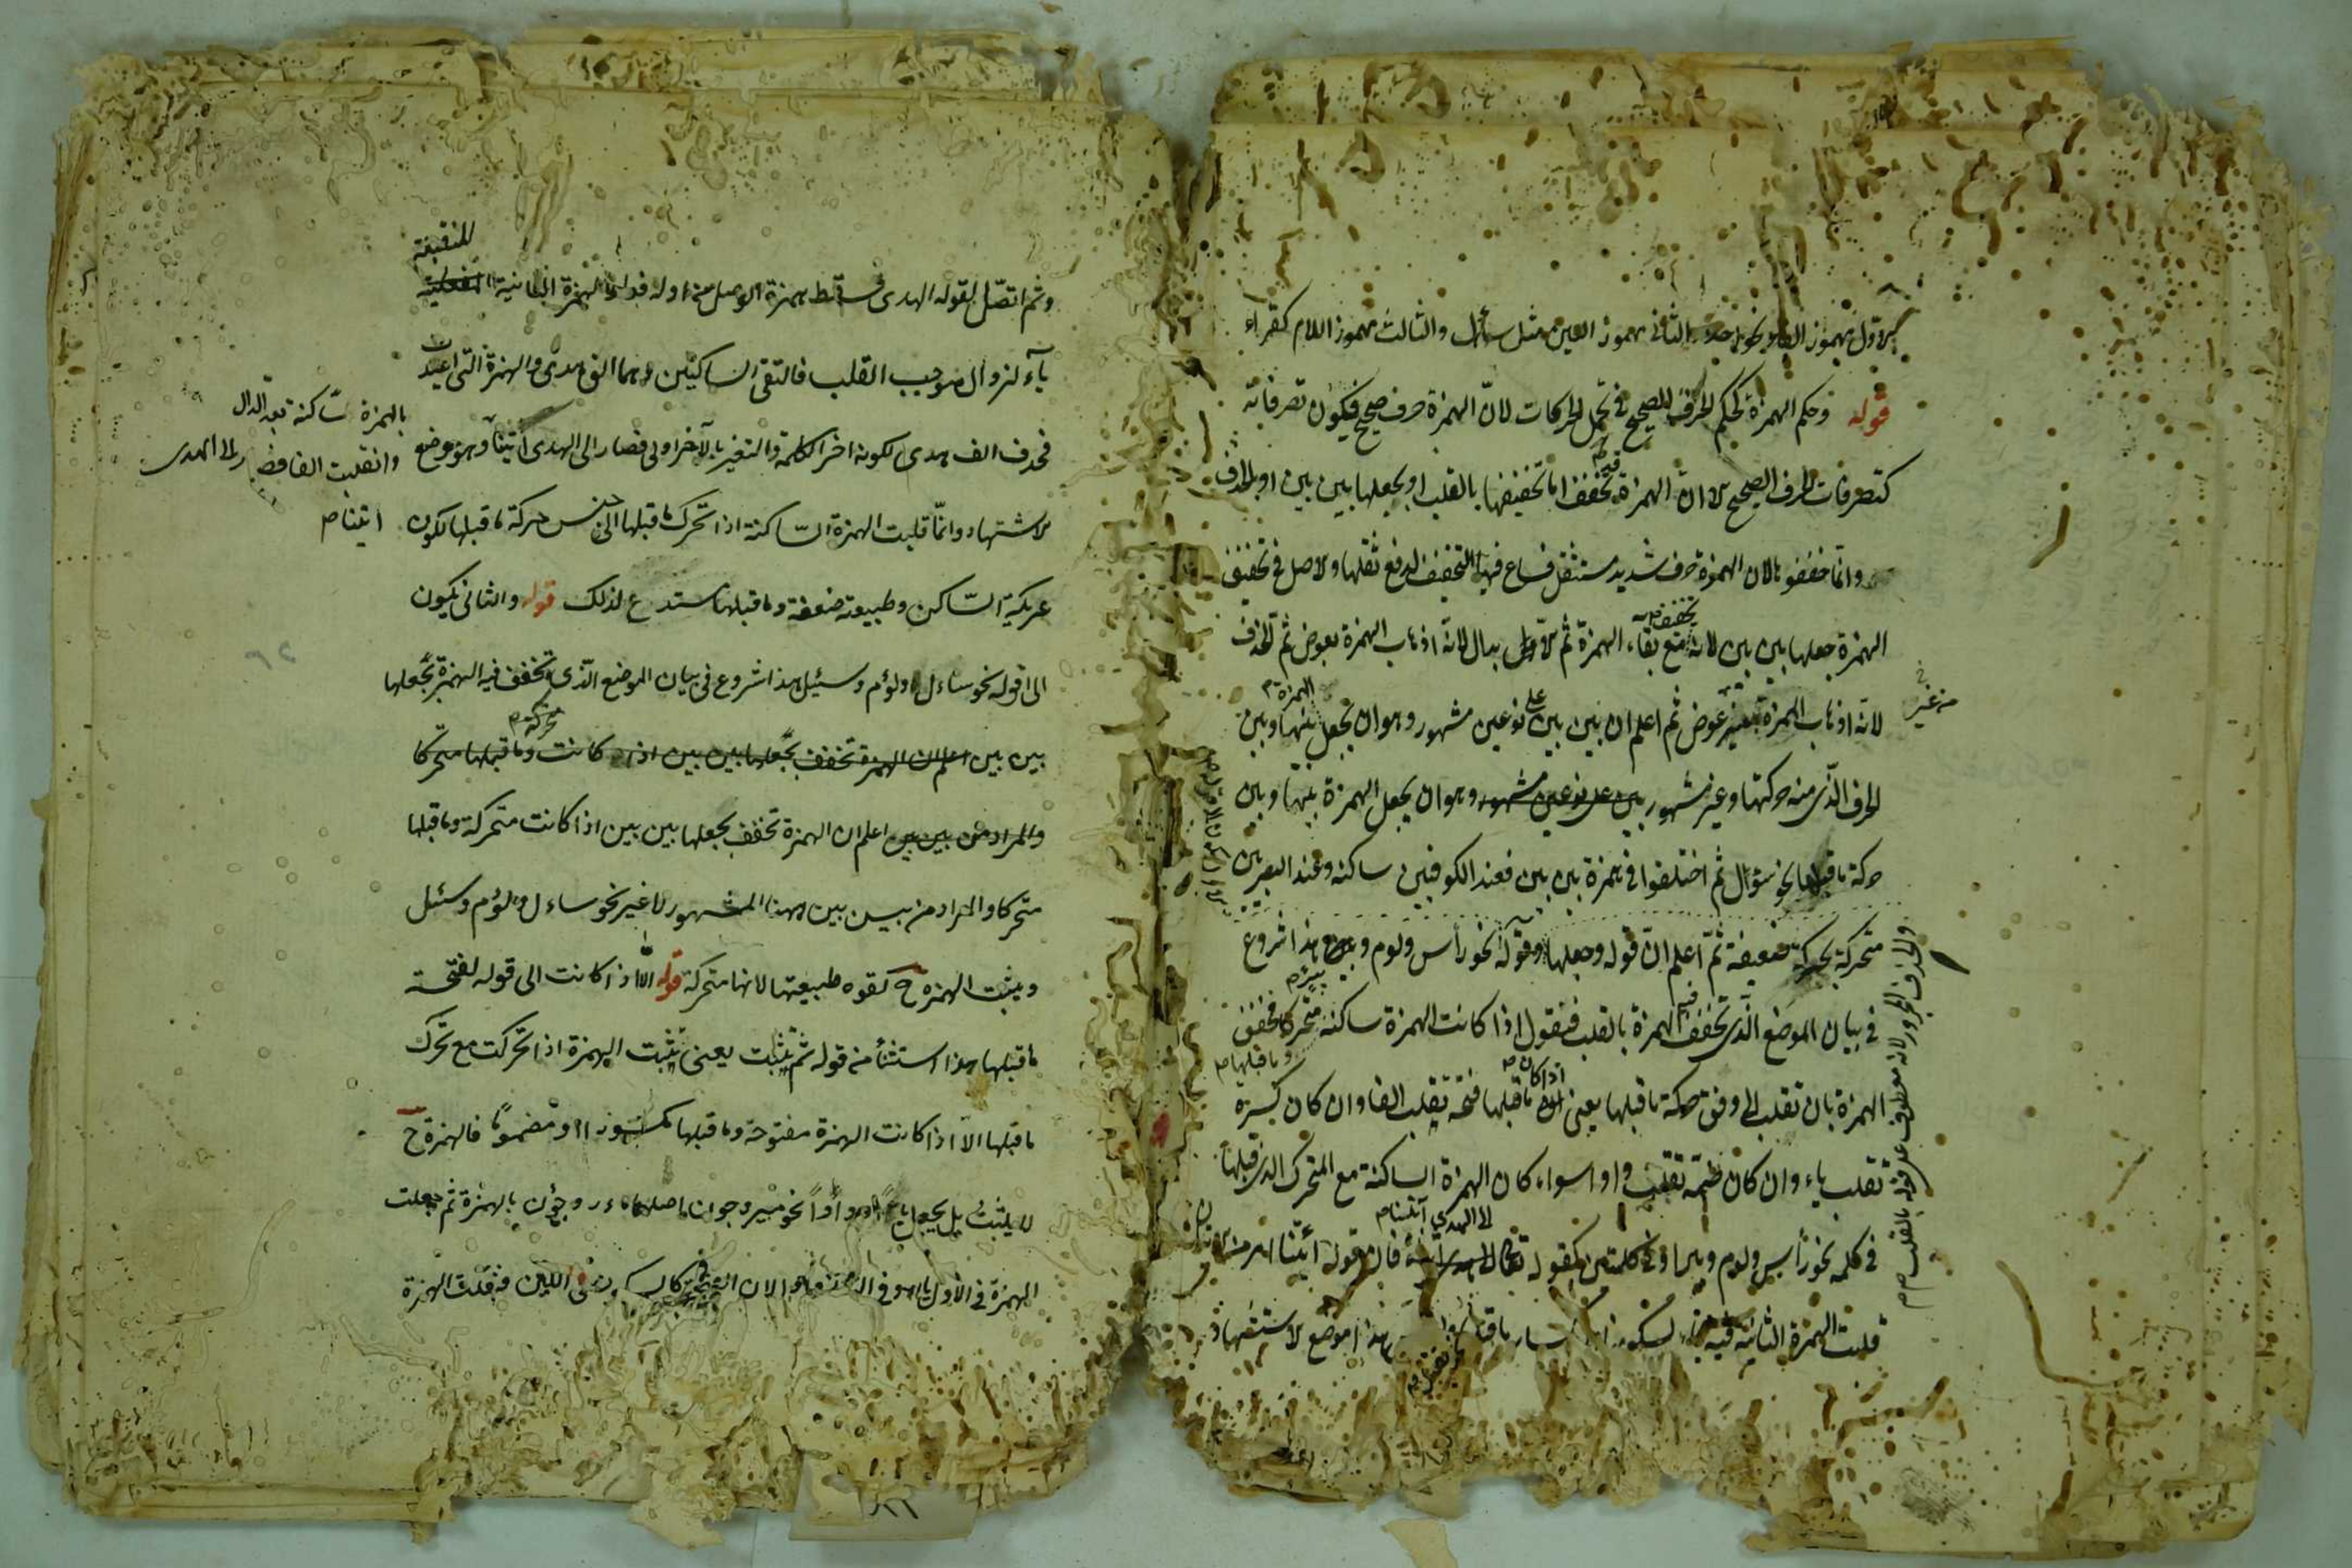 الاول مهموز الفاء نحو اخذ والثانى مهموز العين مثل سأل والثالث مهموز اللام كقراء
قوله وحكم الهمزة كحكم الحرف الصحيح فى تحمل الحركات لانّ الهمزة حرف صحيح فيكون تصرفاته
كتصرفات الحرف الصحيح الا انّ الهمزة قد تخفف اما تخفيفها بالقلب او بجعلها بين بين او بالحذف
وانما خففوها لان الهمزة حرف شديد مستثقل فساغ فيها التخفيف لدفع ثقلها والاصل فى تخفيف
الهمزة جعلها بين بين لانه تخفيف مع بقاء الهمزة ثم الابدال لانه اذهاب الهمزة بعوض ثم الحذف
لانه اذهاب الهمزة بغير عوض ثم اعلم ان بين بين على نوعين مشهور وهو ان يجعل الهمزة بينها وبين
من غير
الحرف الذى منه حركتها وغير مشهور بين على نوعين مشهور وهو ان يجعل الهمزة بينها وبين
حركة ما قبلها نحو سؤال ثم اختلفوا فى همزة بين بين فعند الكوفيين ساكنة وعند البصريين
متحركة بحركة ضعيفة ثمّ اعلم انّ قوله وجعلها وقوله نحو رأس ولوم وبير هذا شروع
فى بيان الموضع الذى تخفف فيه الهمزة بالقلب فنقول اذا كانت الهمزة ساكنة وما قبلها متحركا فخفف
الهمزة بان تقلب الى وفق حركة ما قبلها يعنى اذا كان ما قبلها فتحة تقلب الفا وان كان كسرة
تقلب ياء وان كان ضمة تقلب واوا سواء كان الهمزة الساكنة مع المتحرك الذى قبلها
فى كلمة نحو رأس ولوم وبير او فى كلمتين كقوله تعالى الى الهدى آئتنا فان قوله ائتنا امر من
قلبت الهمزة الثانية فيه ياء لسكونها وانكسار ما قبلها هذا موضع الاستشهاد
والحذف المجرور لانه معطوف على قوله بالقلب
وثم اتصّل بقوله الهدى فسقط همزة الوصل من اوله الهمزة الثانية المنقلبة
ياء لزوال موجب القلب فالتقى الساكنين وهما الف هدى والهمزة التى اعيدت
فحذف الف هدى لكونه اخر الكلمة والتغير بالآخر اولى فصار الى الهدى آئتنا وهو موضع
بالهمزة ساكنة بعد الدال
وانقلبت الفا فصار الى الهدى
ايتنا
الاشتهاد وانّما قلبت الهمزة السّاكنة اذا تحرك ما قبلها الى جنس حركة ما قبلها لكون
عريكة السّاكن وطبيعته ضعفة وما قبلها مستدع لذلك قوله والثانى يكون
الى قوله نحو ساءل ولؤم وسئيل هذا شروع فى بيان الموضع الّذى تخفف فيه الهمزة بجعلها
بين بين اعلم ان الهمزة تخفف بجعلها بين بين اذا كانت متحركة وما قبلها متحركا
والمراد من بين بين اعلم ان الهمزة تخفف بجعلها بين بين اذا كانت متحركة وما قبلها
متحركا والمراد من بين بين ههنا المشهور لا غير نحو ساءل ولؤم وسئل
ويثبت الهمزة ح لقوه طبيعتها لانها متحركة قوله الّا اذا كانت الى قوله لفتحة
ما قبلها هذا استثنأ من قوله ثم يثبت يعنى يثبت الهمزة اذا تحركت مع تحرك
ما قبلها الا اذا كانت الهمزة مفتوحة وما قبلها مكسورا او مضموماً فالهمزة ح
لا يثبت بل يجعل ياءً او واواً نحو مير وجون اصلهما مءر وجؤن بالهمزة ثم جعلت
الهمزة فى الاول ياء وفى الثانى واوا لان الفتحة كالسكون فى اللين فقلبت الهمزة